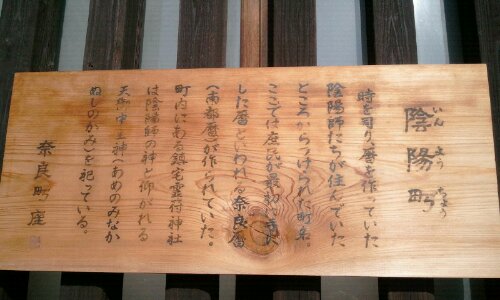 いんようちょう
陰陽町
時を司り、暦を作っていた
陰陽師たちが住んでいた
ところからつけられた町名。
ここでは庶民が最初に手に
した暦といわれる奈良暦
(南都暦)が作られていた。
町内にある鎮宅霊符神社
は陰陽師の神と仰がれる
天御中主神(あめのみなか
ぬしのかみ)を祀っている。
奈良町座